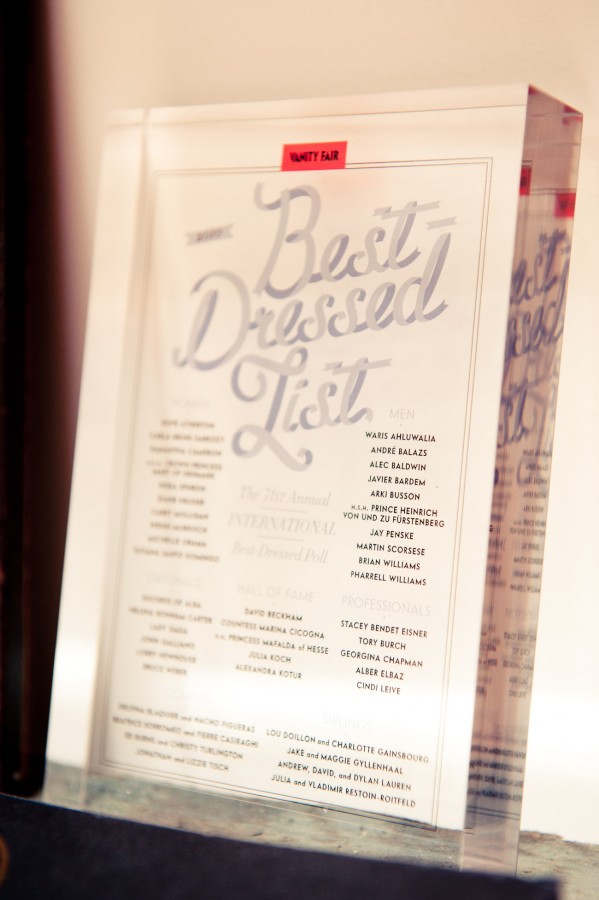 VANITY FAIR
Best-
Dressed
List
WOMEN
CARLA BRUNI-SARKOZY
SAMANTHA CAMERON
H.R.H. CROWN PRINCESS
MARY OF DENMARK
CAREY MULLIGAN
TATIANA SANTO DOMINGO
MEN
WARIS AHLUWALIA
ANDRÉ BALAZS
ALEC BALDWIN
JAVIER BARDEM
ARKI BUSSON
H.S.H. PRINCE HEINRICH
VON UND ZU FÜRSTENBERG
JAY PENSKE
MARTIN SCORSESE
BRIAN WILLIAMS
PHARRELL WILLIAMS
The 71st Annual
INTERNATIONAL
Best-Dressed Poll
ORIGINALS
DUCHESS OF ALBA
HELENA BONHAM CARTER
LADY GAGA
JOHN GALLIANO
BRUCE WEBER
HALL OF FAME
DAVID BECKHAM
COUNTESS MARINA CICOGNA
H.H. PRINCESS MAFALDA of HESSE
JULIA KOCH
ALEXANDRA KOTUR
PROFESSIONALS
STACEY BENDET EISNER
TORY BURCH
GEORGINA CHAPMAN
ALBER ELBAZ
CINDI LEIVE
DELFINA BLAQUIER and NACHO FIGUERAS
BEATRICE BORROMEO and PIERRE CASIRAGHI
ED BURNS and CHRISTY TURLINGTON
JONATHAN and LIZZIE TISCH
SIBLINGS
LOU DOILLON and CHARLOTTE GAINSBOURG
JAKE and MAGGIE GYLLENHAAL
ANDREW, DAVID, and DYLAN LAUREN
JULIA and VLADIMIR RESTOIN-ROITFELD